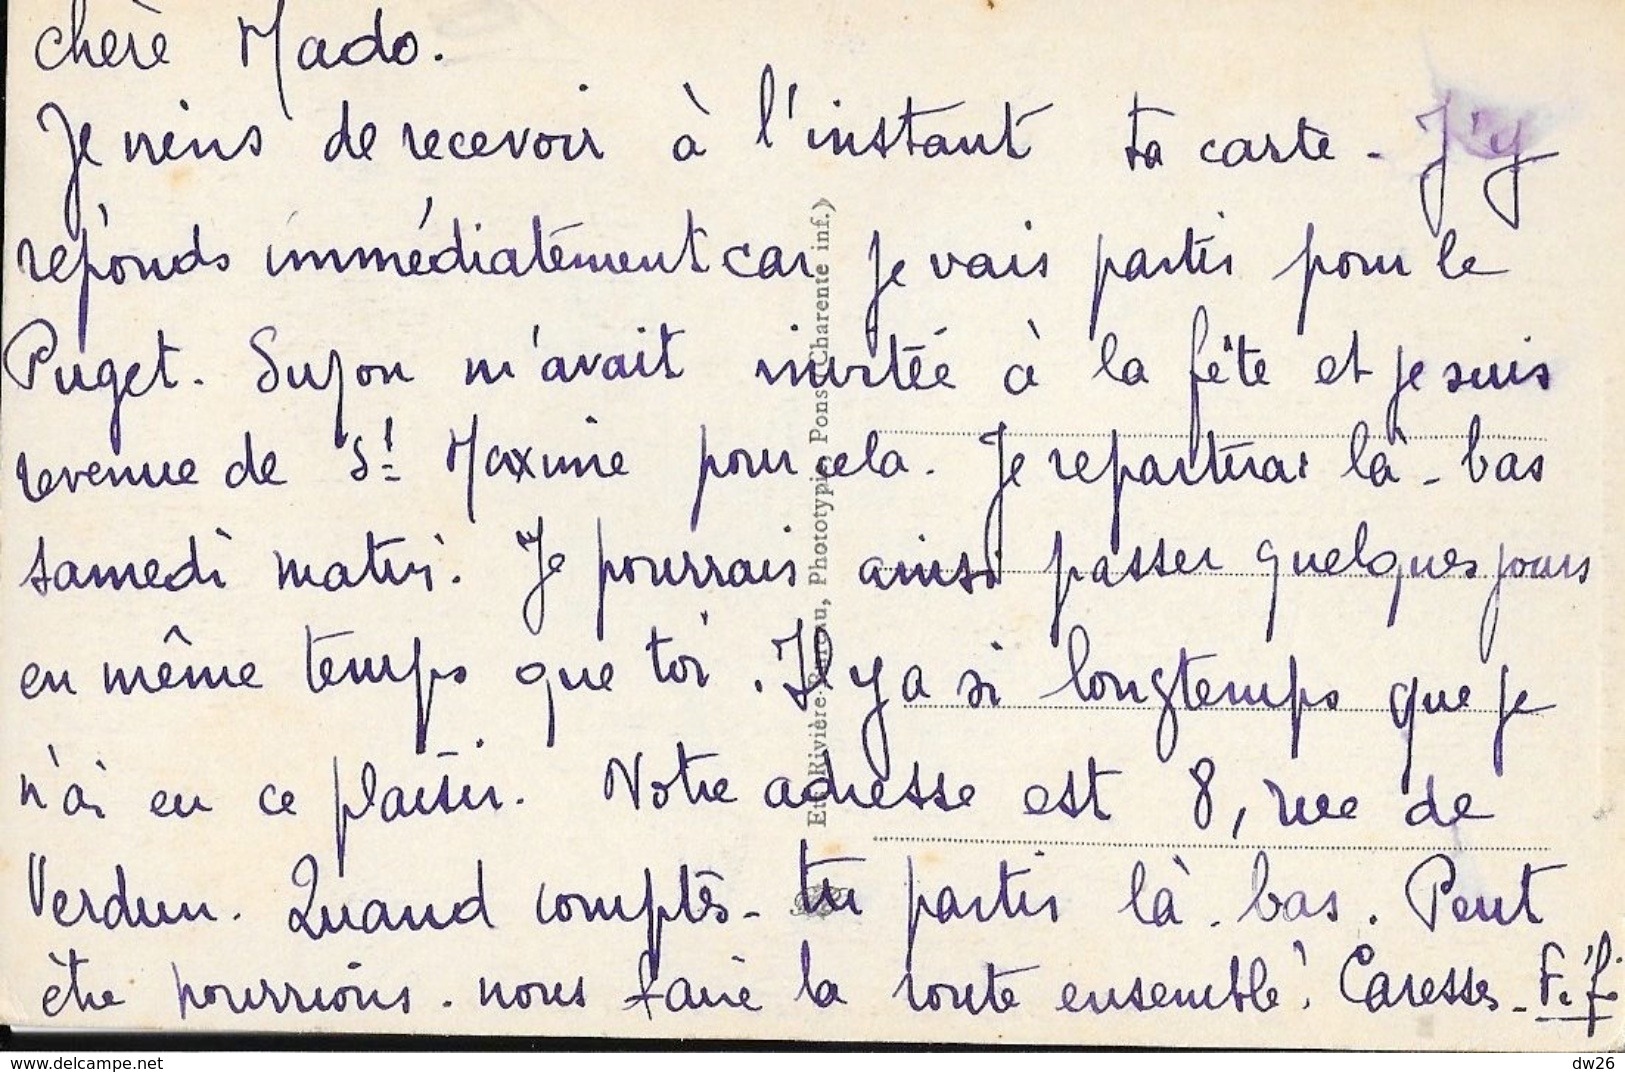 chère Mado.
Je viens de recevoir à l'instant ta carte - J'y
réponds immédiatement car je vais partir pour le
Puget. Suzon m'avait invitée à la fête et je suis
revenue de St Maxime pour cela. Je repartirai là-bas
samedi matin. Je pourrais ainsi passer quelques jours
en même temps que toi. Il y a si longtemps que je
n'ai eu ce plaisir. Notre adresse est 8, rue de
Verdun. Quand comptes-tu partir là-bas. Peut
être pourrions-nous faire la route ensemble! Caresses - Fifi
Phototypie, Pons (Charente inf.)
delcampe.net
dw26